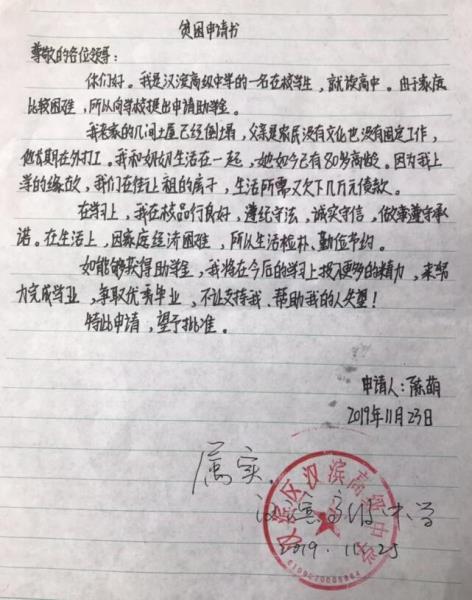 贫困申请书
尊敬的各位领导：
你们好。我是汉滨高级中学的一名在校学生，就读高中。由于家庭
比较困难，所以向学校提出申请助学金。
我老家的几间土屋已经倒塌，父亲是农民没有文化也没有固定工作，
他长期在外打工。我和奶奶生活在一起，她如今已有80岁高龄。因为我上
学的缘故，我们在街上租的房子，生活所需又欠下几万元债款。
在学习上，我在校品行良好，遵纪守法，诚实守信，做事遵守承
诺。在生活上，因家庭经济困难，所以生活检朴、勤俭节约。
如能够获得助学金，我将在今后的学习上投入更多的精力，来努
力完成学业，争取优秀毕业，不让支持我、帮助我的人失望！
特此申请，望予批准。
申请人：陈萌
2019年11月23日
属实.
汉滨高级中学
2019.11.25
汉滨区汉滨高级中学